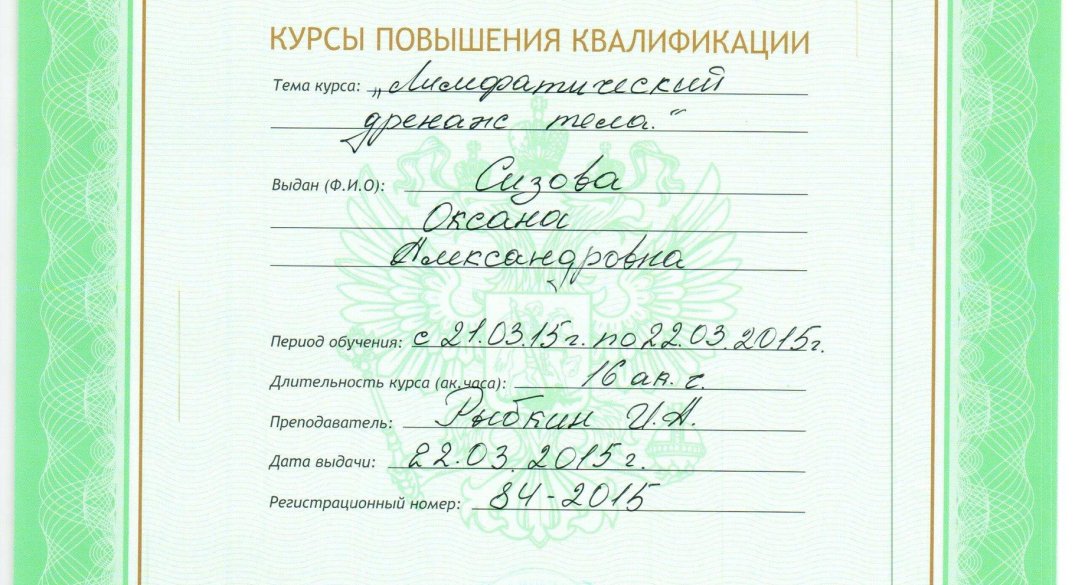 КУРСЫ ПОВЫШЕНИЯ КВАЛИФИКАЦИИ
Тема курса: „Лимфатический
дренаж тела.“
Выдан (Ф.И.О): Сизова
Оксана
Александровна
Период обучения: с 21.03.15г. по 22.03.2015г.
Длительность курса (ак.часа): 16 ак. ч.
Преподаватель: Рыбкин И.А.
Дата выдачи: 22.03.2015г.
Регистрационный номер: 84-2015